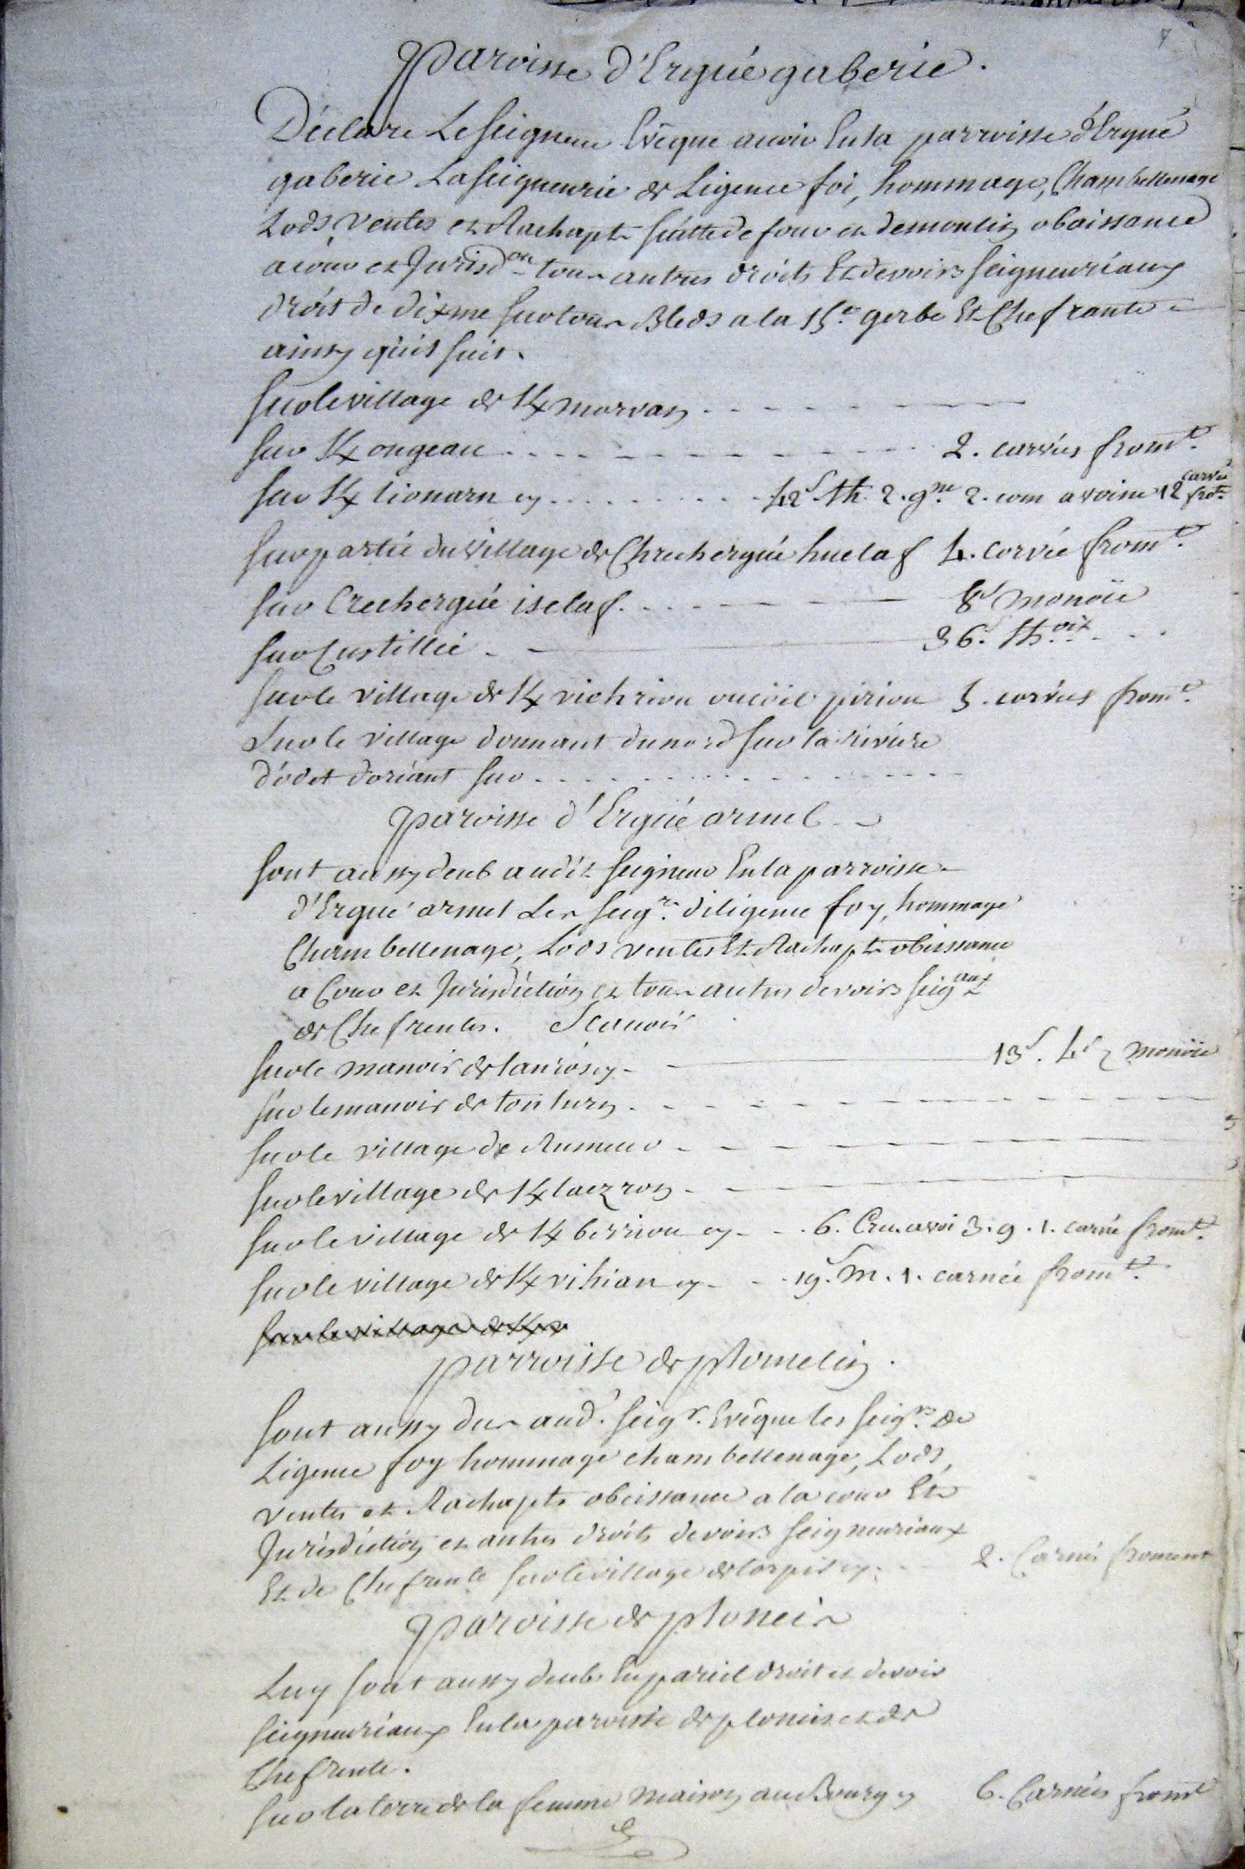 Paroisse d'Ergué gaberie.
Déclare Le seigneur Evêque avoir En la parroisse d'Ergué
gaberie La seigneurie de Ligence foi, hommage, Chambellenage
Lods ventes et Rachapts suitte de four et de moulin obaissance
a cour et Jurisd.on tous autres droits Et devoirs seigneuriaux
droit de dixme sur tous Bleds a la 15.e gerbe Et Chefrante
ainsy qu'il suit.
Sur le village de K/morvan
Sur K/ongeau 2. carrées from.t
Sur K/lionarn 12.s th. 2. g.ne 2. com avoine 12 carrées fro.t
Sur partie du village de Chrechergué huelaf 4. corvée from.t
Sur Crecherguéiselaf. 8.d monoïe
Sur Custillié 36.s
Sur le village de K/vichriou pirion 5. corvées from.t
Sur le village donnant du nord sur la rivière
d'odet d'oriant sur
Paroisse d'Ergué armel
Sont aussy deub audit seigneur En la parroisse
d'Ergué armel Les seig.rs diligence foy, hommage
Chambellenage, Lods ventes Et Rachapts obeissance
a Cour et Jurisdiction et tous autres devoirs seig.aux
de Chefrentes. Scavoir
Sur le manoir de lanrosy 13.s. 4.d monoïe
Sur le manoir de
Sur le village de Rumeur
Sur le village de K/laezron
Sur le village de K/berriou 6. avoi 3. g. 1. carrée from.t
Sur le village de K/vihian 19.s m. 1. carnée from.tt
Sur le village de K/
parroisse de plomelin.
Sont aussy dus aud.t seig.r. Evêque les seig.rs de
Ligence foy hommage chambellenage, Lods,
ventes et Rachapts obeissance a la cour Et
Jurisdiction et autres droits devoirs seigneuriaux
Et de Chefrente sur le village de 2. Carnées froment
Paroisse de ploneis
Luy sont aussy deub En pareil droit et devoir
seigneuriaux En la paroisse de ploneis et de
Chefrente.
Sur la terre de la femme maison au Bourg 6. Carnées fromt